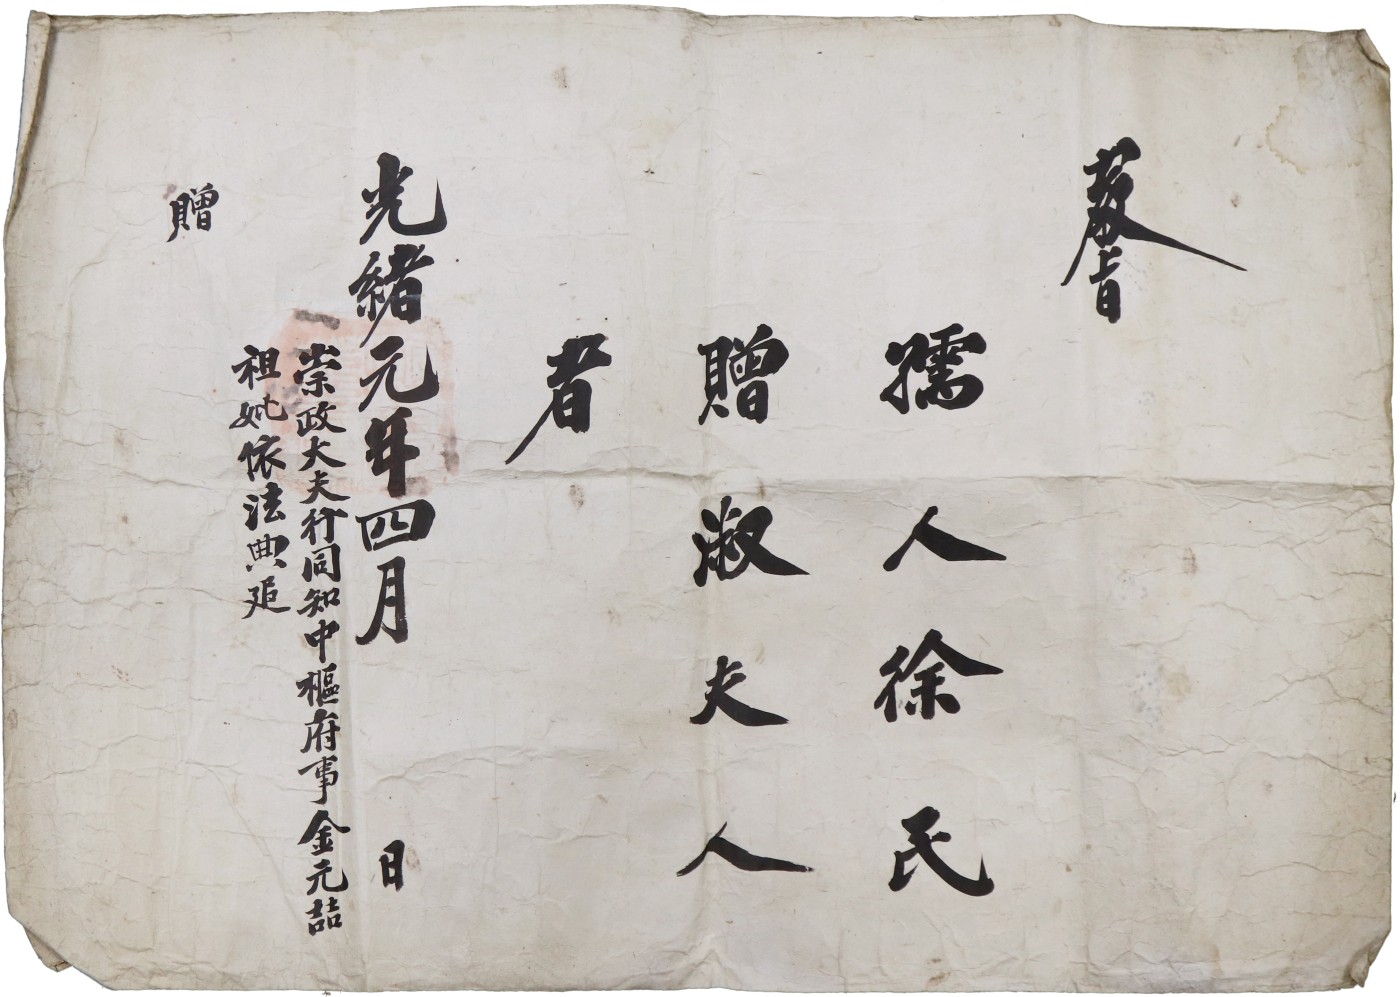 敎旨
孺人徐氏
贈淑夫人
者
光緖元年四月 日
崇政大夫行同知中樞府事金元喆
祖妣依法典追
贈